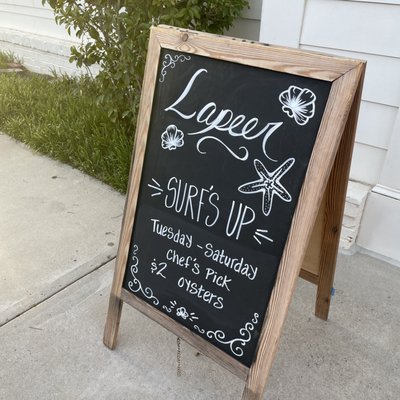 Lapeer
SURF'S UP
Tuesday - Saturday
CHEF'S PICK
$2 oysters